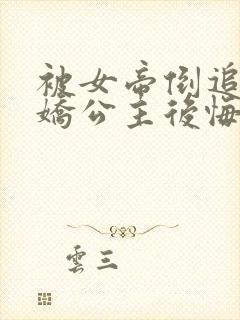 被女帝倒追
嬌公主後悔
雲三